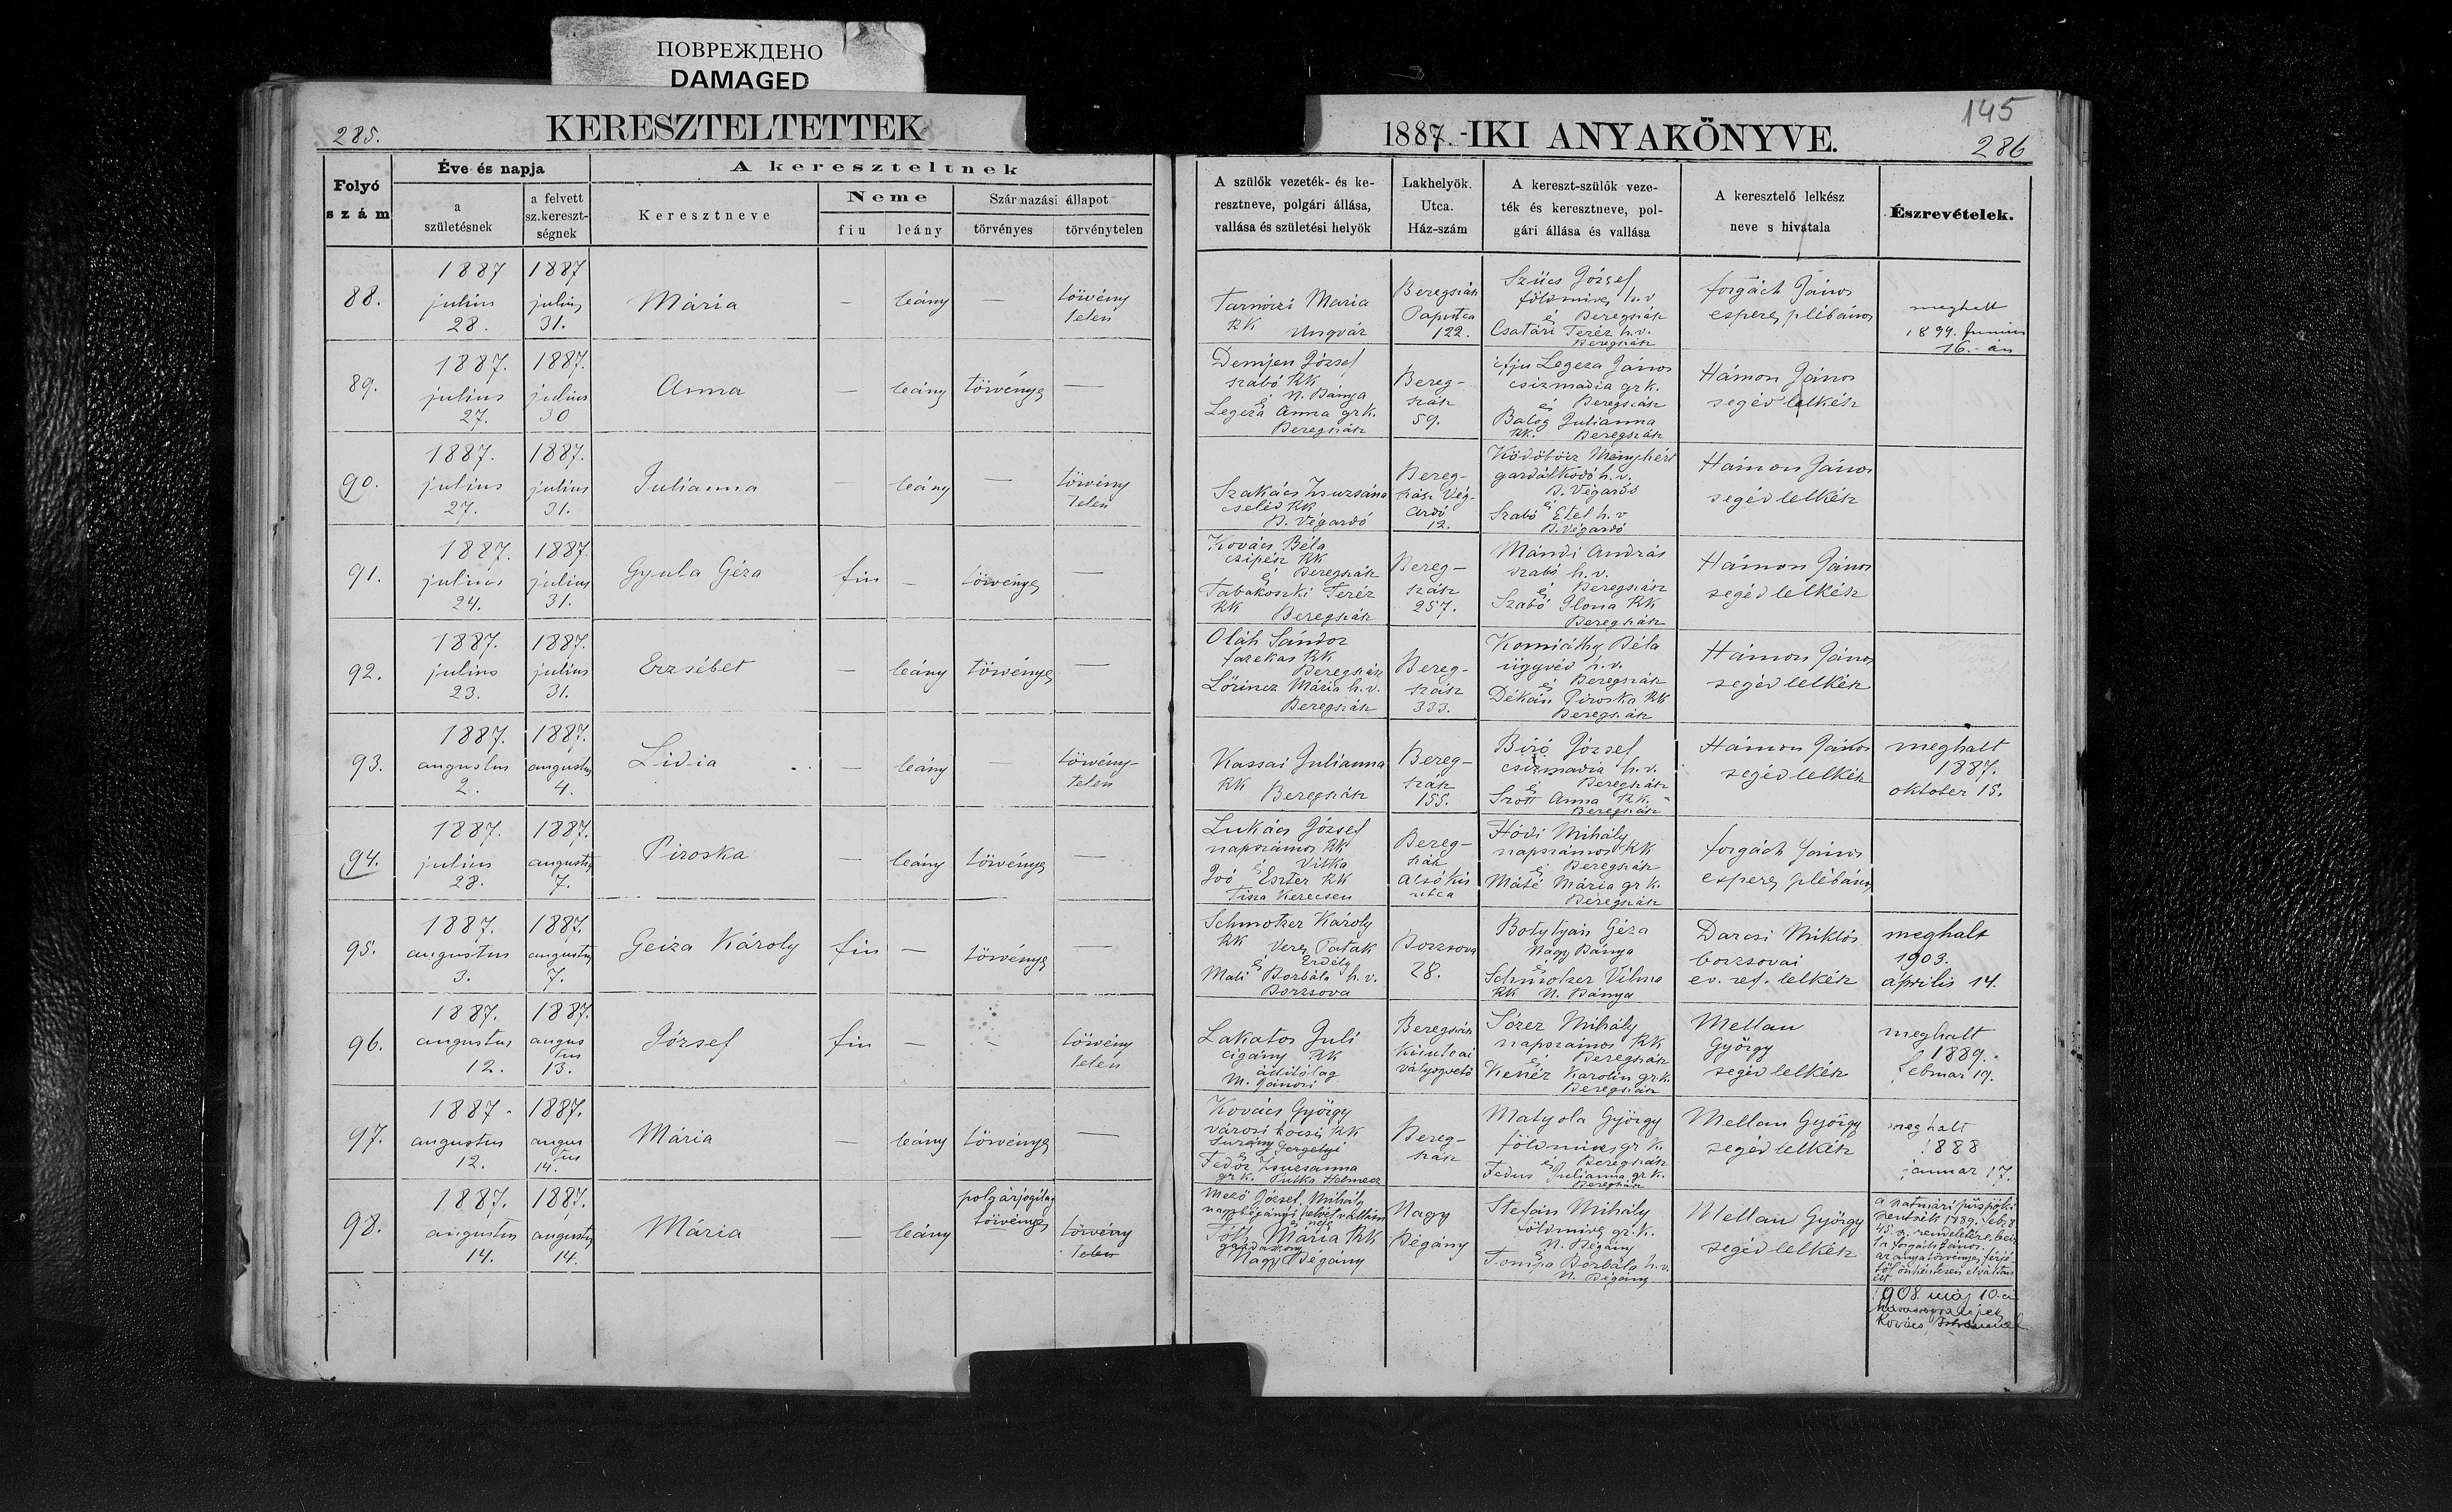 ПОВРЕЖДЕНО
DAMAGED
285.
KERESZTELTETTEK
1887.-IKI ANYAKÖNYVE.
145
286
Folyó
szám
Éve és napja
a
születésnek
a felvett
sz.kereszt-
ségnek
A kereszteltnek
Keresztneve
Neme
fiu
leány
Származási állapot
törvényes
törvénytelen
A szülők vezeték- és ke-
resztneve, polgári állása,
vallása és születési helyök
Lakhelyök.
Utca.
Ház-szám
A kereszt-szülők veze-
ték és keresztneve, pol-
gári állása és vallása
A keresztelő lelkész
neve s hivatala
Észrevételek.
88.
1887
julius
28.
1887
julius
31.
Mária
—
leány
törvény
telen
Tarnóczi Maria
RK
Ungvár
Beregszász
122.
Szücs József
földmives h.v
és Beregszász
Csatári Teréz h.v.
Beregszász
forgách János
esperes plébános
meghalt
1894. Junius
16.-án
89.
1887.
julius
27.
1887.
julius
30
Anna
—
leány
törvényes
—
Demjen József
szabó RK
és N. Bánya
Legeza Anna grk.
Beregszász
Bereg-
szász
59.
ifju Legeza János
csizmadia gr k.
és Beregszász
Balog Julianna
RK. Beregszász
Hámon János
segéd lelkész
90.
1887.
julius
27.
1887.
julius
31.
Julianna
—
leány
—
törvény
telen
Szakács Zsuzsána
cseléd RK
B. Végardó
Bereg-
szász Vég-
ardó
12.
Menyhért
h.v.
B. Végardó
és
Szabó Etel h.v
B. Végardó
Hámon János
segéd lelkész
91.
1887.
julius
24.
1887.
julius
31.
Gyula Géza
fiu
—
törvényes
—
Kovács Béla
RK
és Beregszász
Tabakoszki Teréz
RK
Beregszász
Bereg-
szász
257.
Mándi András
szabó h.v.
és Beregszász
Szabó Ilona RK
Beregszász
Hámon János
segéd lelkész
92.
1887.
julius
23.
1887.
julius
31.
Erzsébet
—
leány
törvényes
—
Oláh Sándor
fazekas RK
Beregszász
Lőrincz Mária h.v.
Beregszász
Bereg-
szász
333.
Béla
ügyvéd h.v.
és Beregszász
Dékán Piroska RK
Beregszász
Hámon János
segéd lelkész
93.
1887.
augustus
2.
1887.
augustus
4.
Lidia
—
leány
törvény-
telen
Kassai Julianna
RK
Beregszász
Bereg-
szász
155.
Biró József
csizmadia h.v.
és Beregszász
Anna RK.
Beregszász
Hámon János
segéd lelkész
meghalt
1887.
oktober 15.
94.
1887.
julius
28.
1887.
augustus
7.
Piroska
—
leány
törvényes
—
Lukács József
napszámos RK
és Vitka
Joó Eszter RK
Tisza Kerecsen
Bereg-
szász
alsó kis
utca
Hódi Mihály
napszámos RK
és Beregszász
Máté Mária gr k.
Beregszász
forgách János
esperes plébános
95.
1887.
augustus
3.
1887.
augustus
7.
Geiza Károly
fiu
—
törvényes
—
Schmotzer Károly
RK Veres Patak
és Erdély
Borbála h.v.
Borzsova
Borzsova
28.
Géza
Nagy Bánya
és
Schmotzer Vilma
RK N. Bánya
Darcsi Miklós
borzsovai
ev. ref. lelkész
meghalt
1903.
április 14.
96.
1887.
augustus
12.
1887.
augus
tus
13.
József
fiu
—
—
törvény
telen
Lakatos Juli
cigány RK
állitólag
M. Jánosi
Beregszász
vályogvető
Mihály
napszámos RK
és Beregszász
Karolin gr k.
Beregszász
Mellau
György
segéd lelkész
meghalt
1889.
februar 19.
97.
1887.
augustus
12.
1887.
augus
tus
14.
Mária
—
leány
törvényes
—
Kovács György
városi kocsis RK
Surány Gergelyi
és
Fedor Zsuzsanna
gr k. Putka Helmecz
Bereg-
szász
Matyola György
földmives gr k.
és Beregszász
Fedus Julianna gr k.
Beregszász
Mellau György
segéd lelkész
meghalt
1888
januar 17.
98.
1887.
augustus
14.
1887.
augustus
14.
Mária
—
leány
polgárjogilag
törvényes
törvény
telen
József, Mihály
nagybégányi
és neje
Tóth Mária RK
Nagy Bégány
Nagy
Bégány
Stefán Mihály
földmives gr. k.
N. Bégány
és
Borbála h.v.
N. Bégány
Mellau György
segéd lelkész
a szatmári püspöki
1889. febr 8
rendeletére
forgách János.
1908. máj 10-én
Kovács